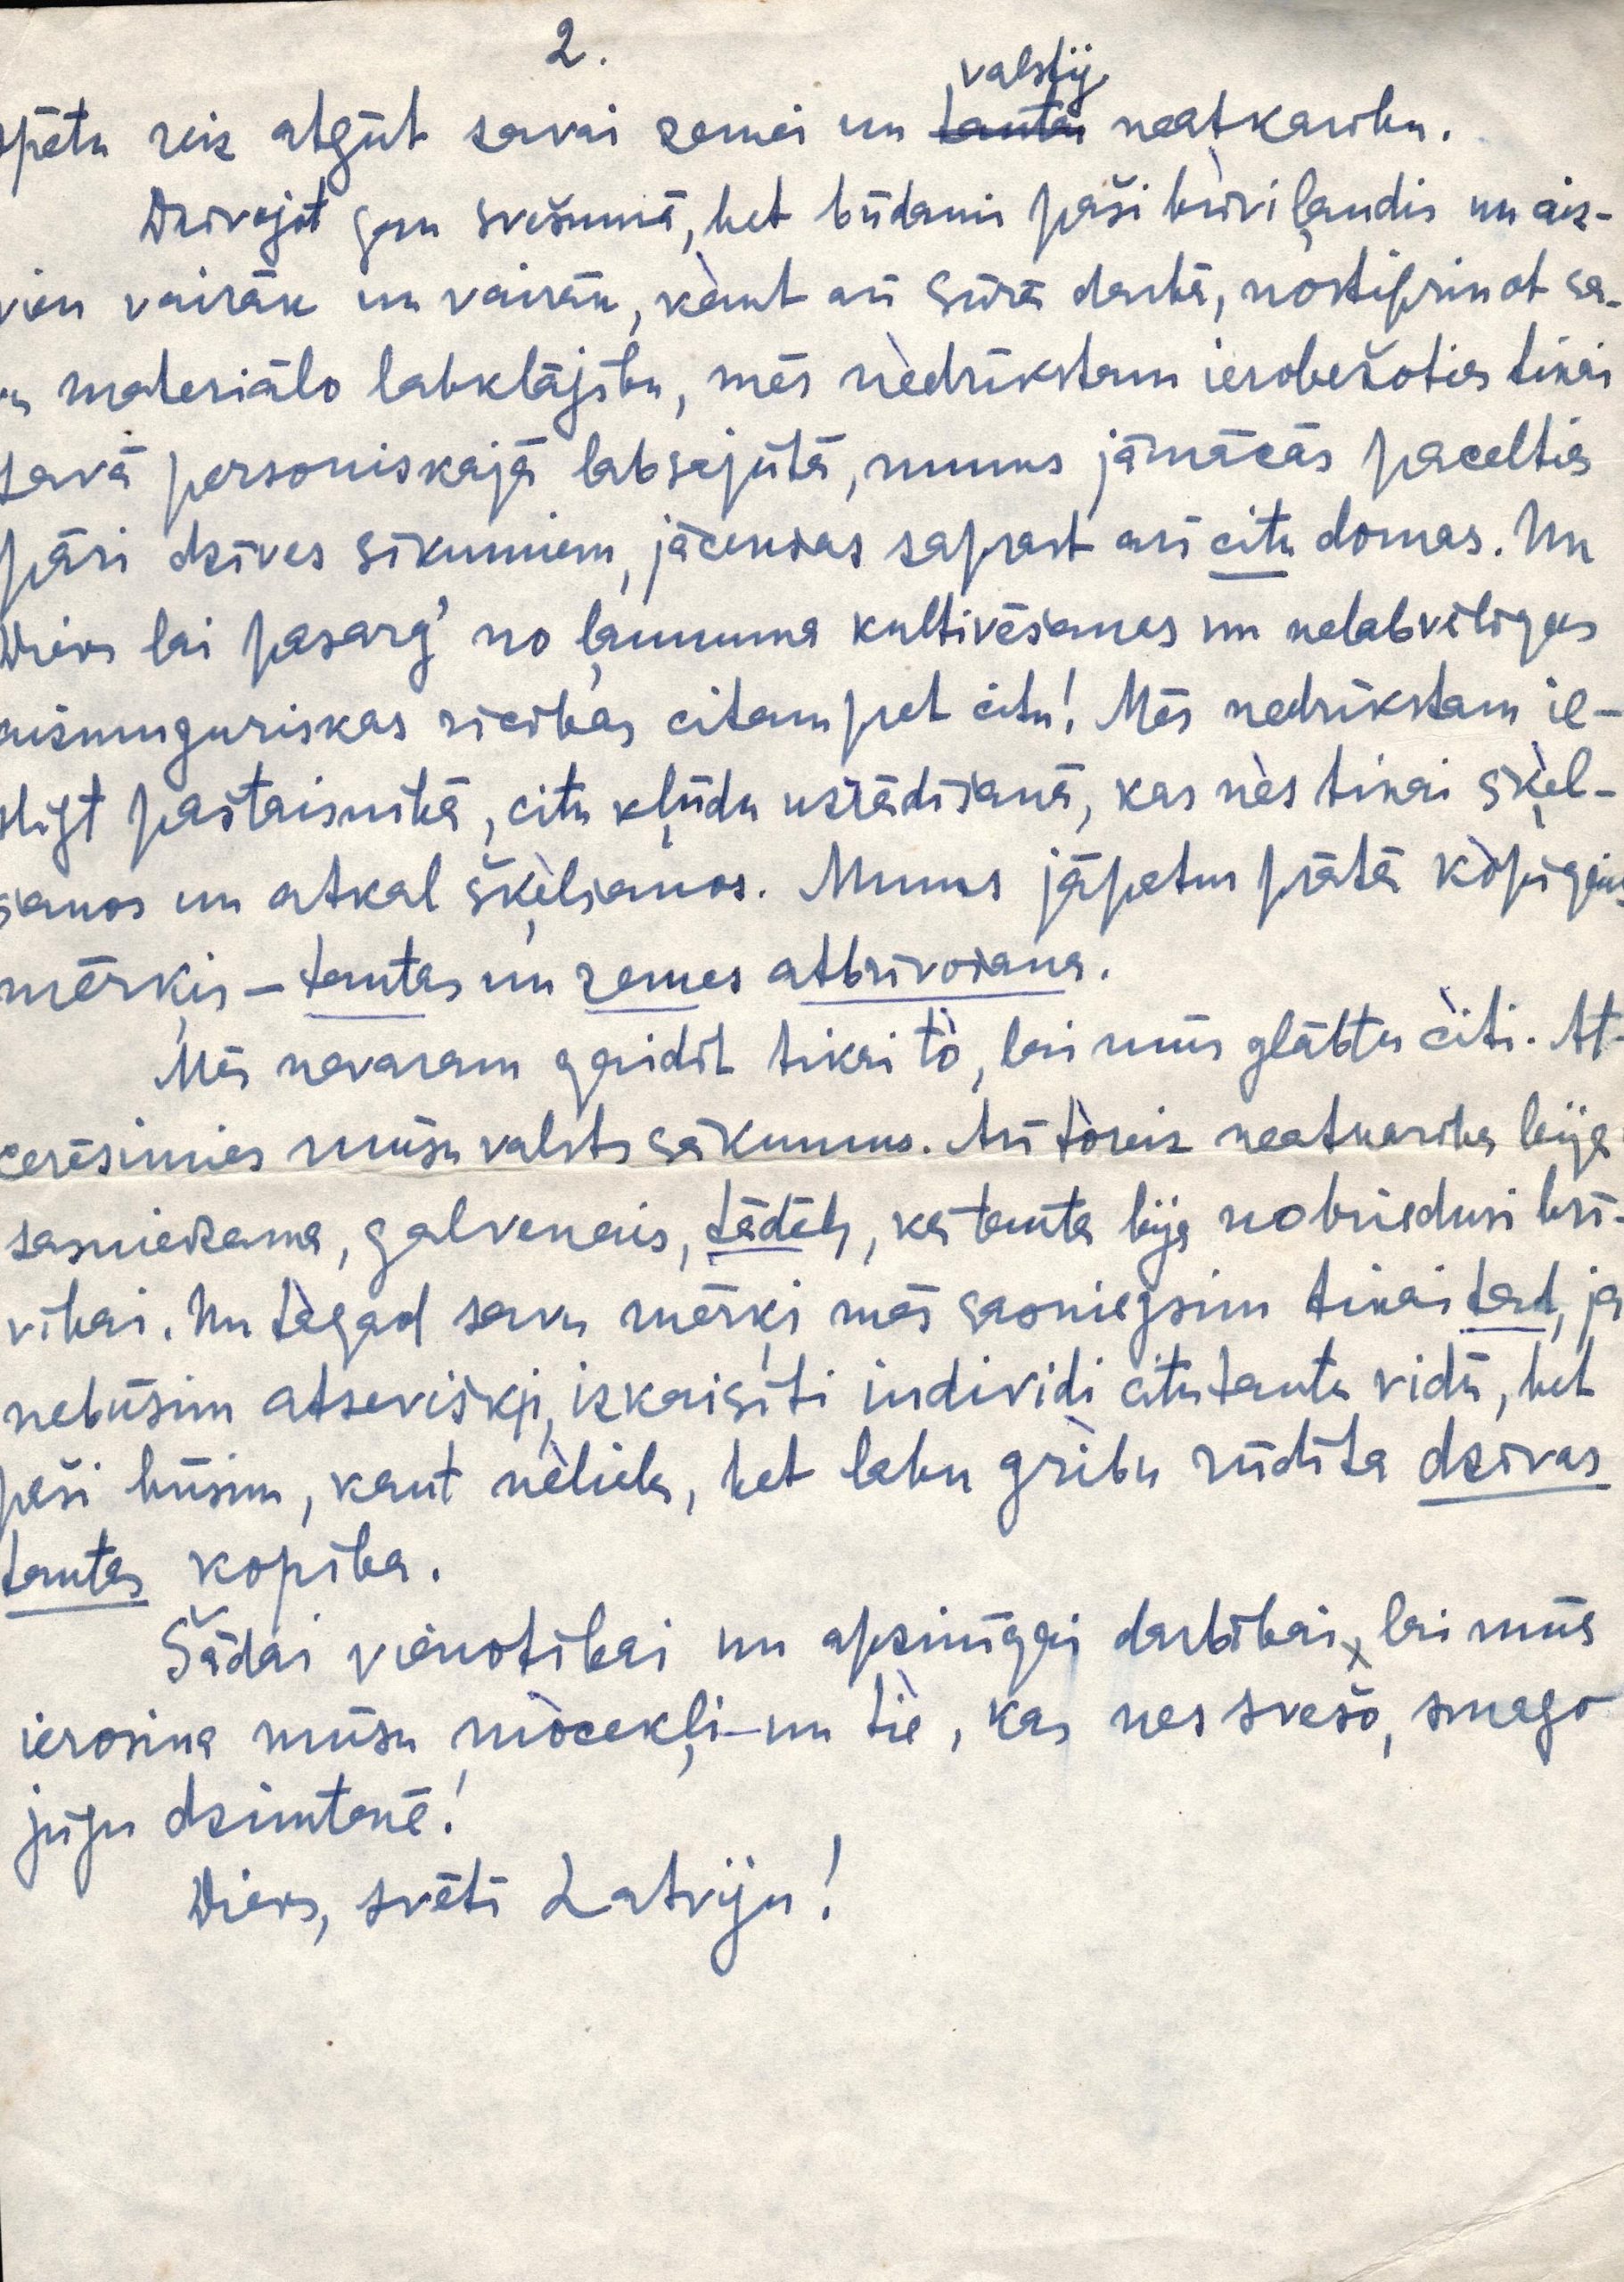 2.
valstij
spētu reiz atgūt savai zemei un tautai neatkarību.
Dzīvojot gan svešumā, bet būdami paši brīvi ļaudis un aiz-
vien vairāk un vairāk, kaut arī sūrā darbā, nostiprinot sa-
vu materiālo labklājību, mēs nedrīkstam ierobežoties tikai
savā personiskajā labsajūtā, mums jāmācās pacelties
pāri dzīves sīkumiem, jācenšas saprast arī citu domas. Un
Dievs lai pasarg' no ļaunuma kultivēšanas un nelabvēlīgas
aizmuguriskas rīcības citam pret citu! Mēs nedrīkstam ie-
slīgt paštaisnībā, citu kļūdu uzrādīšanā, kas nes tikai šķel-
šanos un atkal šķelšanos. Mums jāpatur prātā kopīgais
mērķis – tautas un zemes atbrīvošana.
Mēs nevaram gaidīt tikai to, lai mūs glābtu citi. At-
cerēsimies mūsu valsts sākumus. Arī toreiz neatkarība bija
sasniedzama, galvenais, tādēļ, ka tauta bija nobriedusi brī-
vībai. Un tagad savu mērķi mēs sasniegsim tikai tad, ja
nebūsim atsevišķi, izkaisīti individi citu tautu vidū, bet
paši būsim, kaut neliela, bet labu gribu rūdīta dzīvas
tautas kopība.
Šādai vienotībai un apzinīgai darbībai, lai mūs
ierosina mūsu mocekļi – un tie, kas nes svešo, smago
jūgu dzimtenē!
Dievs, svētī Latviju!